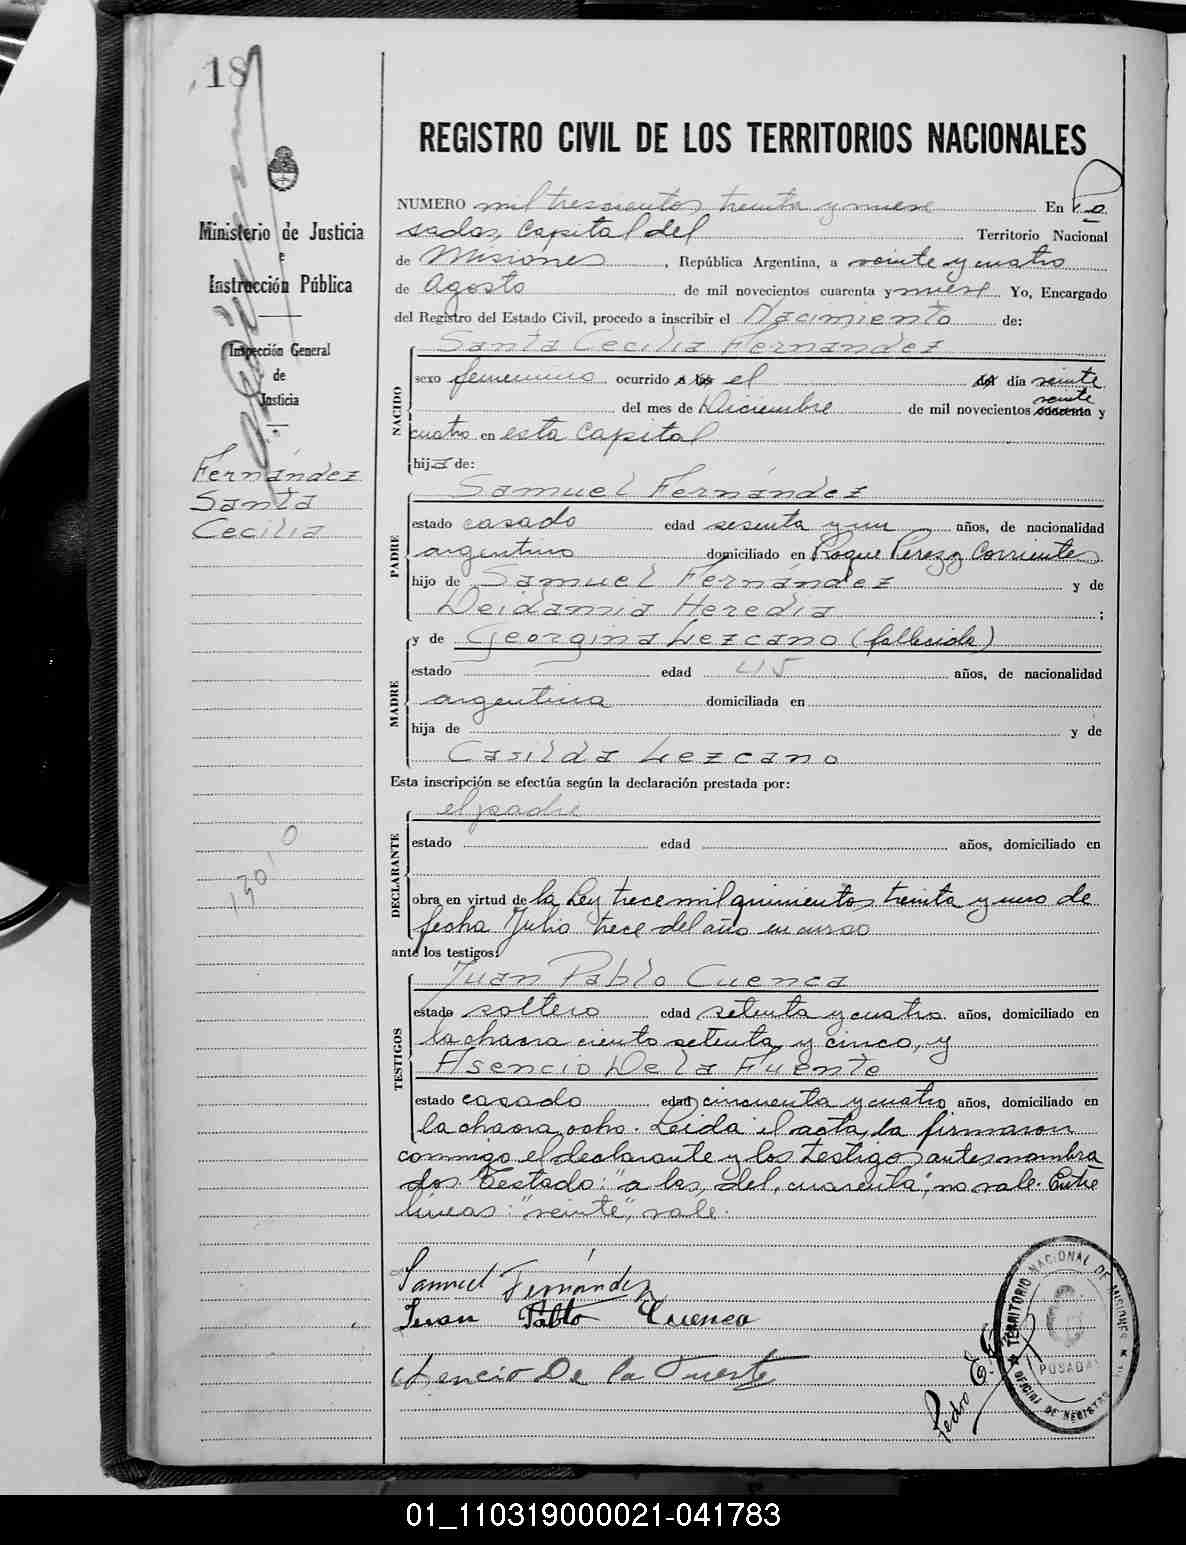 18
Ministerio de Justicia
e
Instrucción Pública
Inspección General
de
Justicia
Fernández
Santa
Cecilia
REGISTRO CIVIL DE LOS TERRITORIOS NACIONALES
NUMERO mil trescientos treinta y nueve En Po
sadas, Capital del Territorio Nacional
de Misiones, República Argentina, a veinte y cuatro
de Agosto de mil novecientos cuarenta y nueve Yo, Encargado
del Registro del Estado Civil, procedo a inscribir el Nacimiento de:
NACIDO
Santa Cecilia Fernandez
sexo femenino ocurrido a las el del día veinte
veinte
del mes de Diciembre de mil novecientos cuarenta y
cuatro en esta Capital
hija de:
PADRE
Samuel Fernández
estado casado edad sesenta y un años, de nacionalidad
argentino domiciliado en Roque Perez y Corrientes
hijo de Samuel Fernández y de
Deidamia Heredia ;
MADRE
y de Georgina Lezcano (fallecida)
estado edad 45 años, de nacionalidad
argentina domiciliada en
hija de y de
Casilda Lezcano
Esta inscripción se efectúa según la declaración prestada por:
DECLARANTE
el padre
estado edad años, domiciliado en
obra en virtud de la Ley trece mil quinientos treinta y uno de
fecha Julio trece del año en curso
ante los testigos:
TESTIGOS
Juan Pablo Cuenca
estado soltero edad setenta y cuatro años, domiciliado en
la chacra ciento setenta y cinco, y
Asencio De la Fuente
estado casado edad cincuenta y cuatro años, domiciliado en
la chacra ocho. Leida el acta, la firmaron
conmigo el declarante y los testigos antes nombra
dos. Testado: "a las, del, cuarenta", no vale. Entre
lineas: "veinte", vale.
Samuel Fernández
Juan Pablo Cuenca
Asencio De la Fuente
Pedro E.
TERRITORIO NACIONAL DE MISIONES
POSADAS
OFICINA DE REGISTRO
01_110319000021-041783